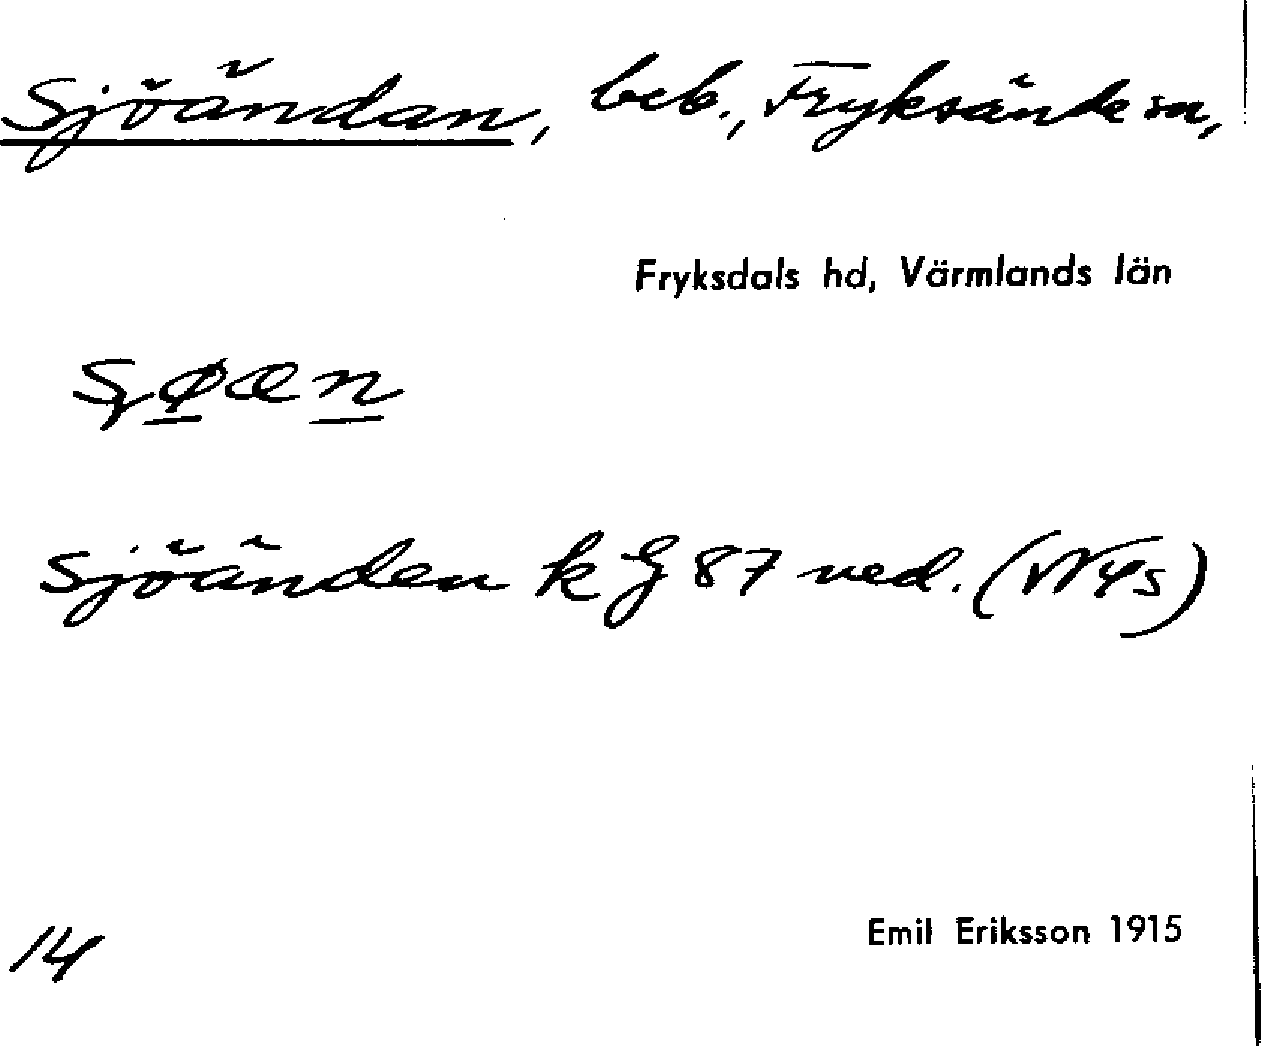 Sjöändan, beb., Fryksände sn,
Fryksdals hd, Värmlands län
Sjöänden k G 87 ned. (NV4s)
14
Emil Eriksson 1915